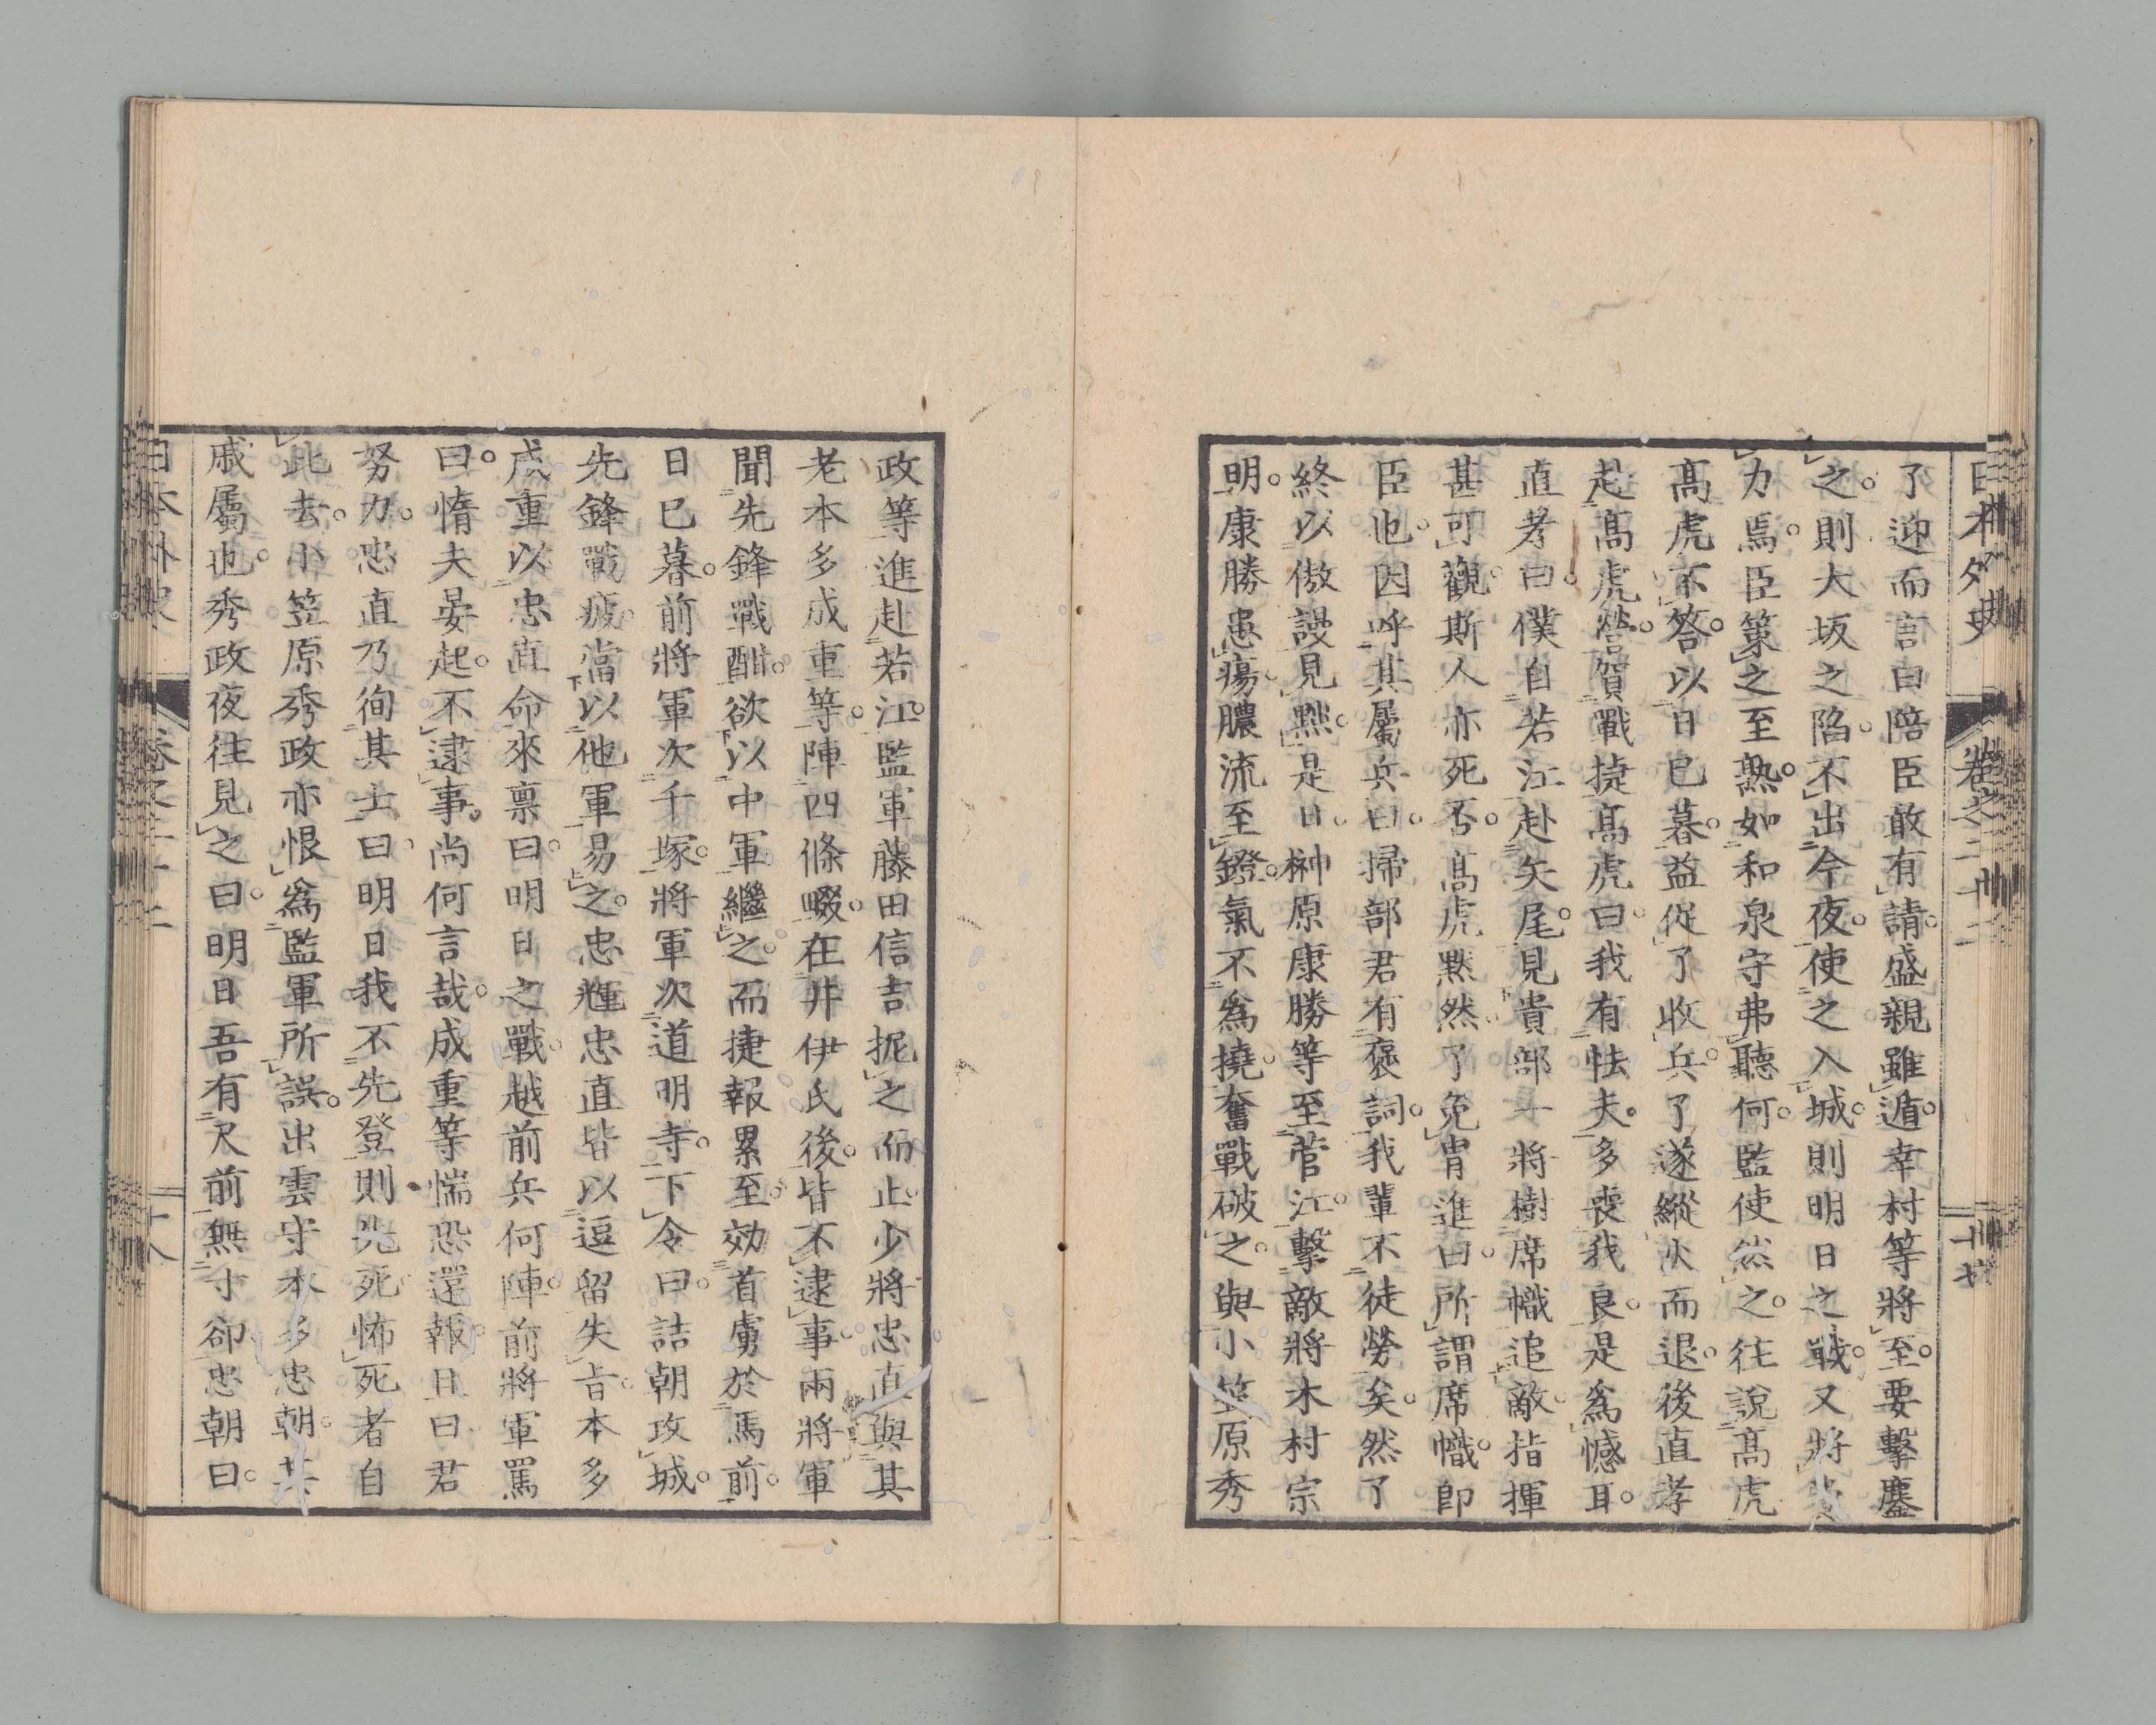 日本外史 卷之二十二 十七
了迎而言曰陪臣敢有請盛親雖遁幸村等將至要擊鏖
之則大坂之陷不出今夜使之入城則明日之戰又將
力焉臣策之至熟如和泉守弗聽何監使然之往說高虎
高虎不答以日已暮益促了收兵了遂縱火而退後直孝
赴高虎營賀戰捷高虎曰我有怯夫多喪我良是爲憾耳
直孝曰僕自若江赴矢尾見貴部一將樹席幟追敵指揮
甚可觀斯人亦死否高虎默然了免冑進曰所謂席幟卽
臣也因呼其屬兵曰掃部君有褒詞我輩不徒勞矣然了
終以傲謾見黜是日榊原康勝等至菅江擊敵將木村宗
明康勝患瘍膿流至鐙氣不爲撓奮戰破之與小笠原秀
政等進赴若江監軍藤田信吉抳之而止少將忠直與其
老本多成重等陣四條畷在井伊氏後皆不逮事兩將軍
聞先鋒戰酣欲以中軍繼之而捷報累至効首虜於馬前
日已暮前將軍次千塚將軍次道明寺下令曰詰朝攻城
先鋒戰疲當以他軍易之忠輝忠直皆以逗留失旨本多
成重以忠直命來稟曰明日之戰越前兵何陣前將軍罵
曰惰夫晏起不逮事尚何言哉成重等惴恐還報且曰君
努力忠直乃徇其士曰明日我不先登則先死怖死者自
此去小笠原秀政亦恨爲監軍所誤出雲守本多忠朝其
戚屬也秀政夜往見之曰明日吾有尺前無寸卻忠朝曰
日本外史 卷之二十二 十八